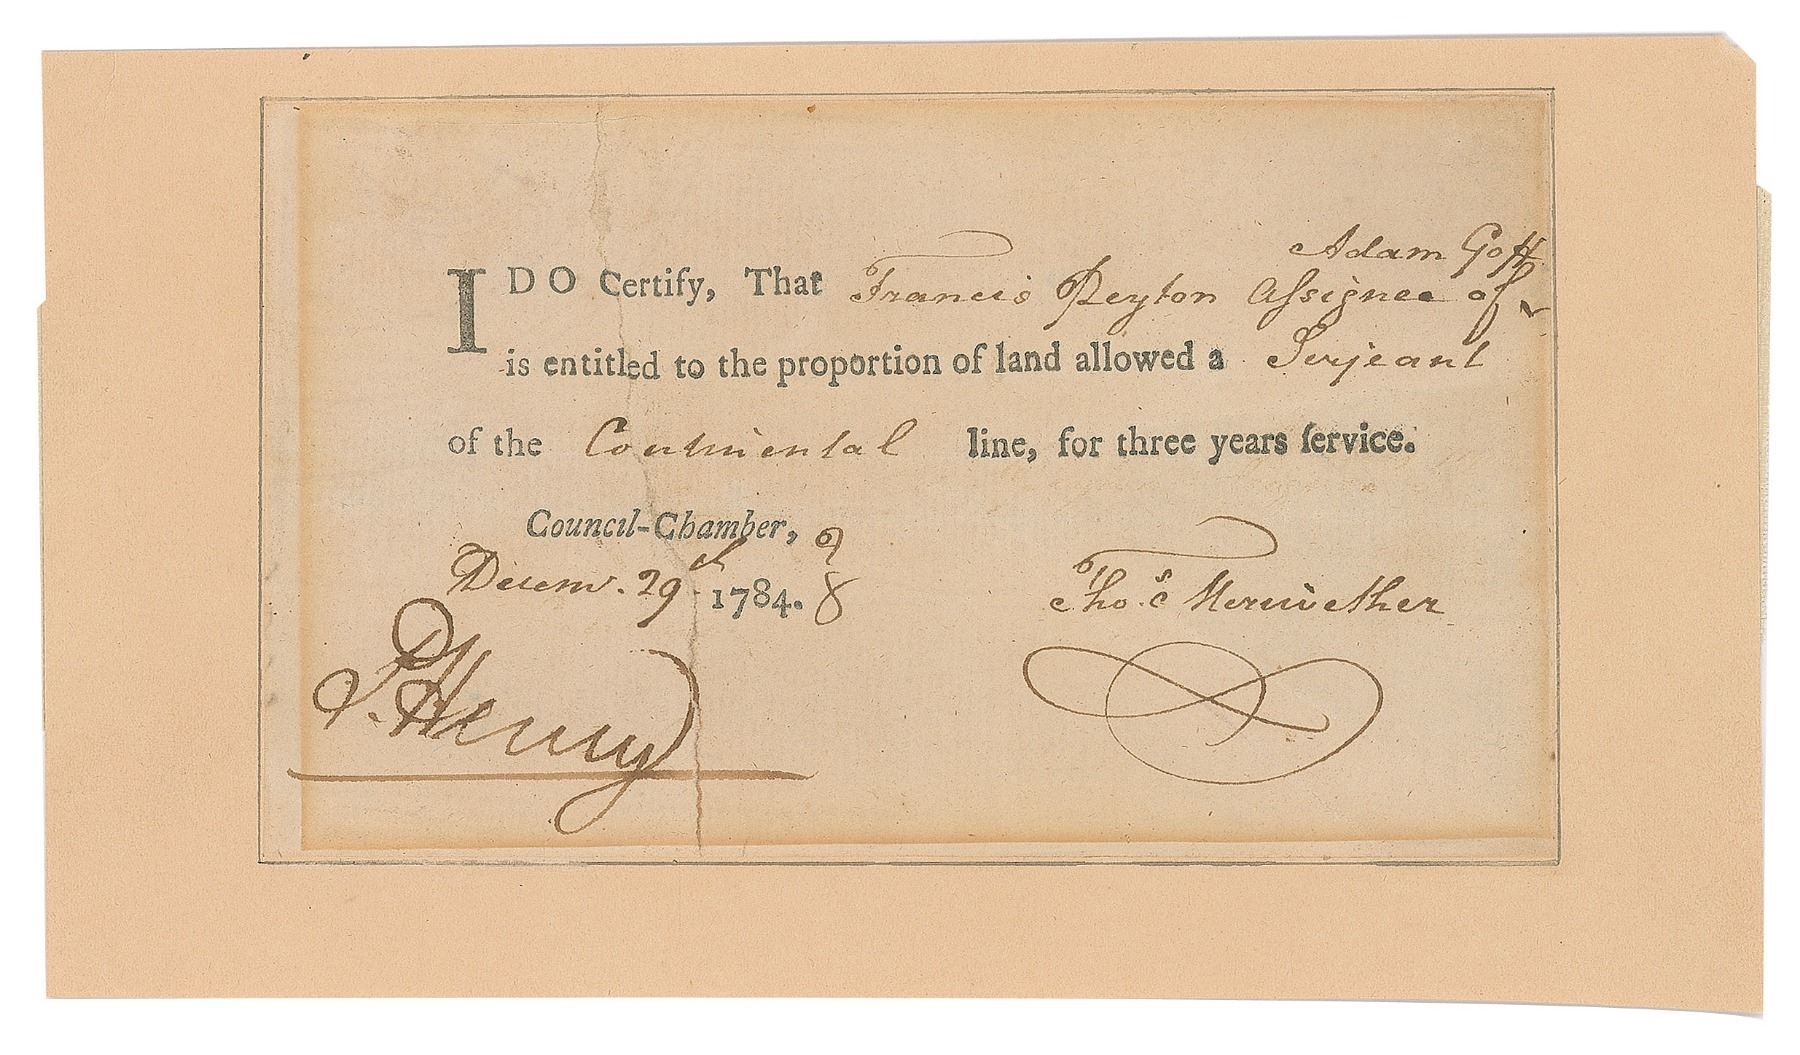 Adam Goff
I DO Certify, That Francis Peyton Assignee of
is entitled to the proportion of land allowed a Serjeant
of the Continental line, for three years ſervice.
Council-Chamber,
Decem. 29th 1784.
Thos. Meriwether
P. Henry